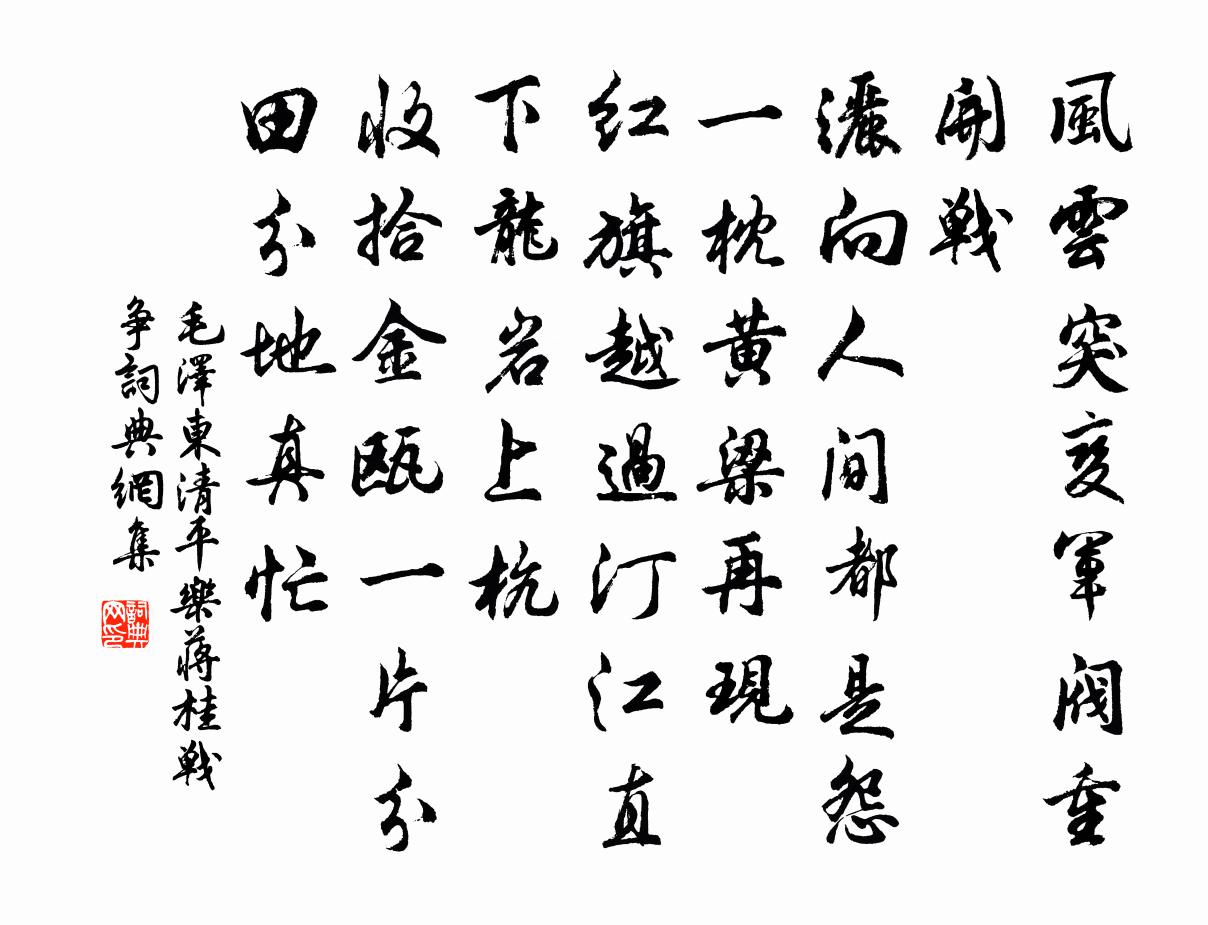 風雲突变軍閥重
開戦
灑向人間都是怨
一枕黄粱再現
红旗越過汀江直
下龍岩上杭
收拾金瓯一片分
田分地真忙
毛澤東清平樂蒋桂戦
争詞典網集
詞典网印